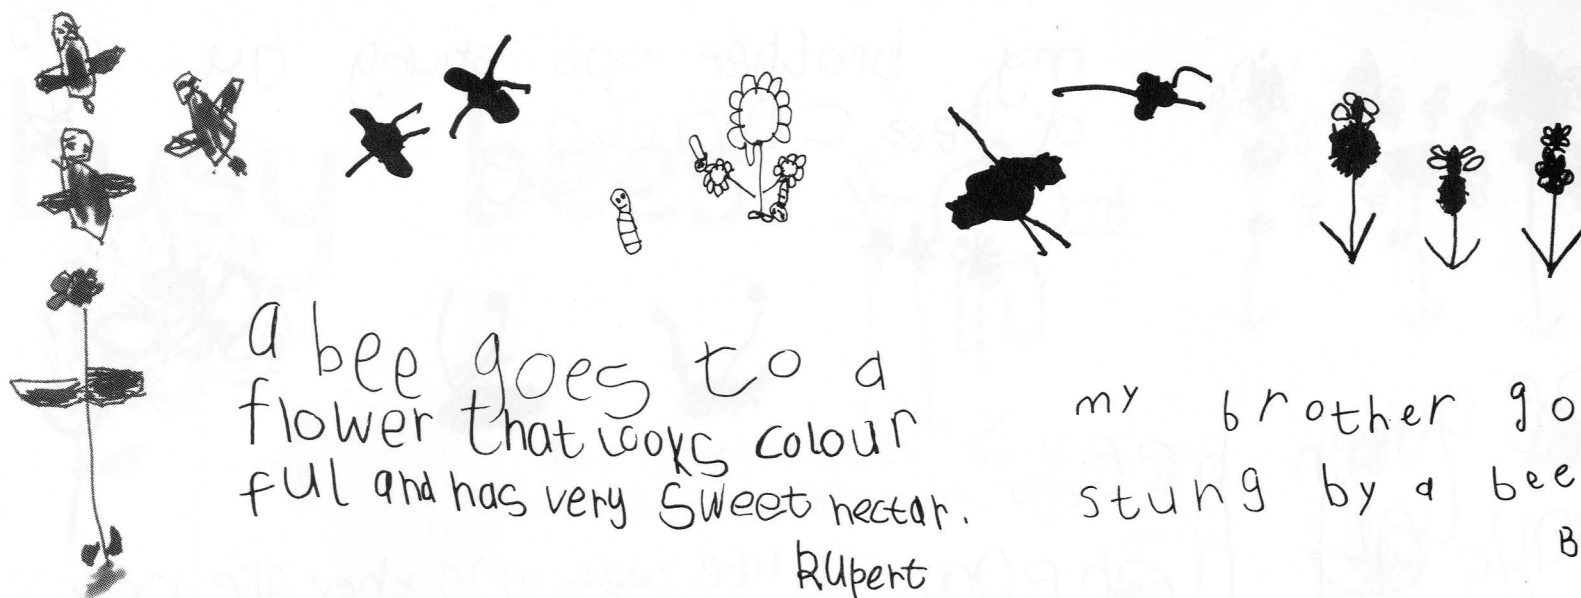 a bee goes to a
flower that looks colour
ful and has very sweet nectar.
Rupert
my brother go
stung by a bee
B